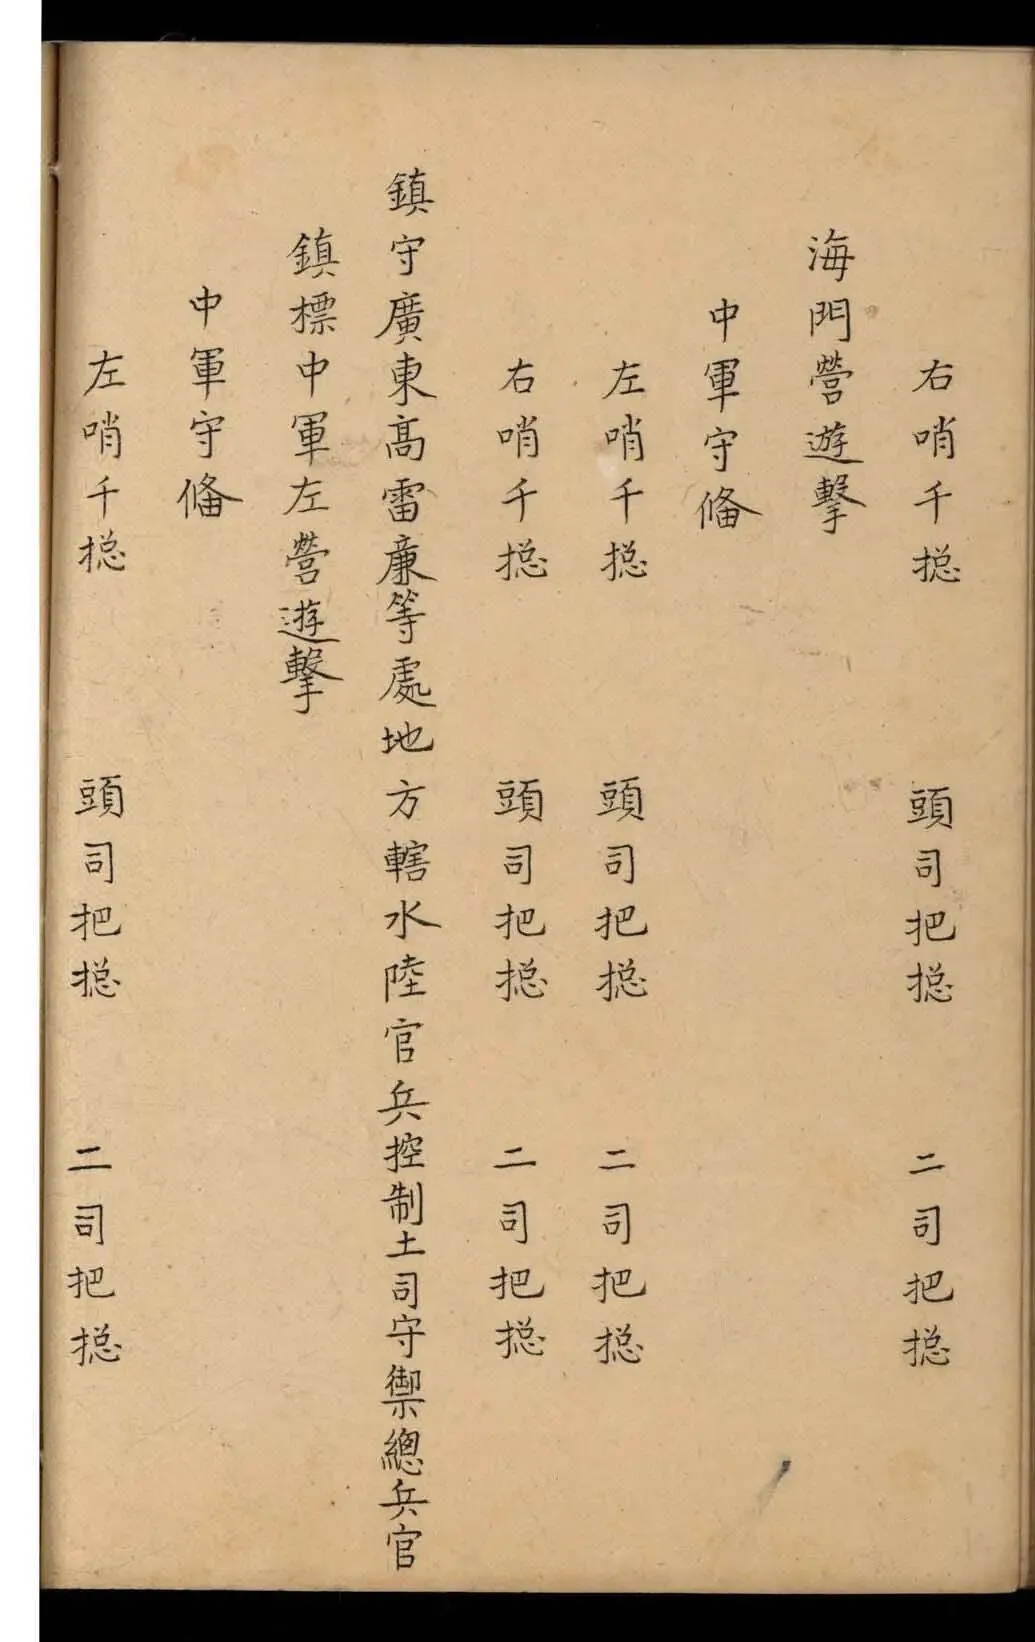 右哨千摠 頭司把摠 二司把摠
海門營遊擊
中軍守俻
左哨千摠 頭司把摠 二司把摠
右哨千摠 頭司把摠 二司把摠
鎮守廣東髙雷廉等處地方轄水陸官兵控制土司守禦總兵官
鎮標中軍左營遊擊
中軍守俻
左哨千摠 頭司把摠 二司把摠